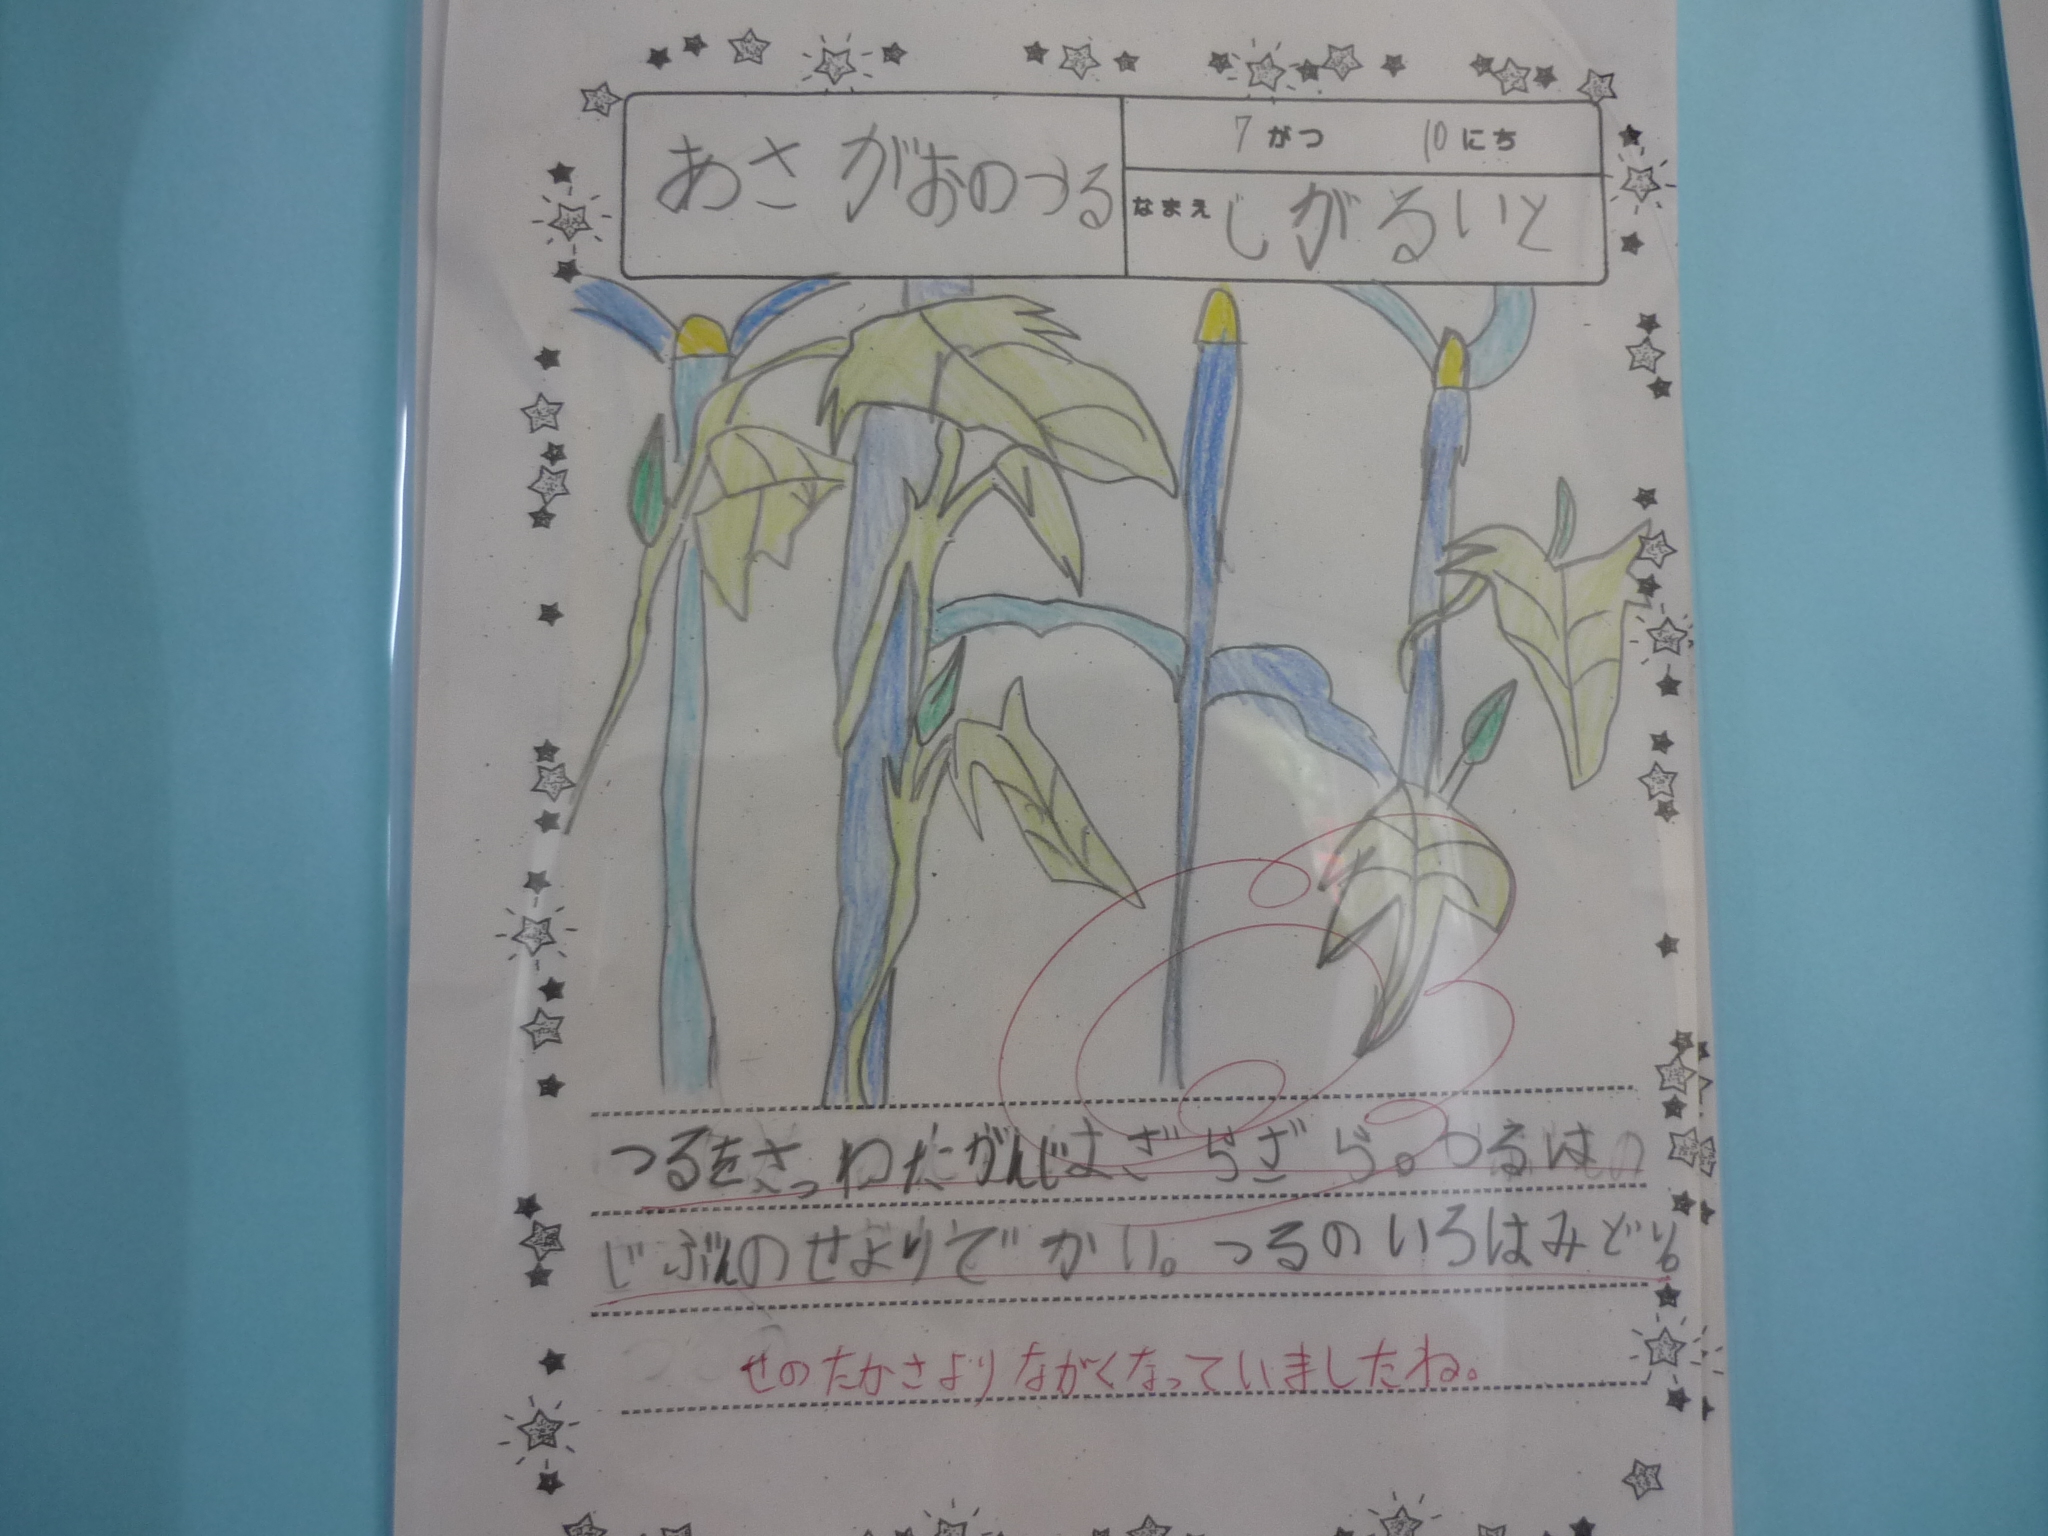 あさがおのつる
7がつ 10にち
なまえ しがるいと
つるをさっわたがんじはざらざら。つるは
じぶんのせよりでかい。つるのいろはみどり。
せのたかさよりながくなっていましたね。